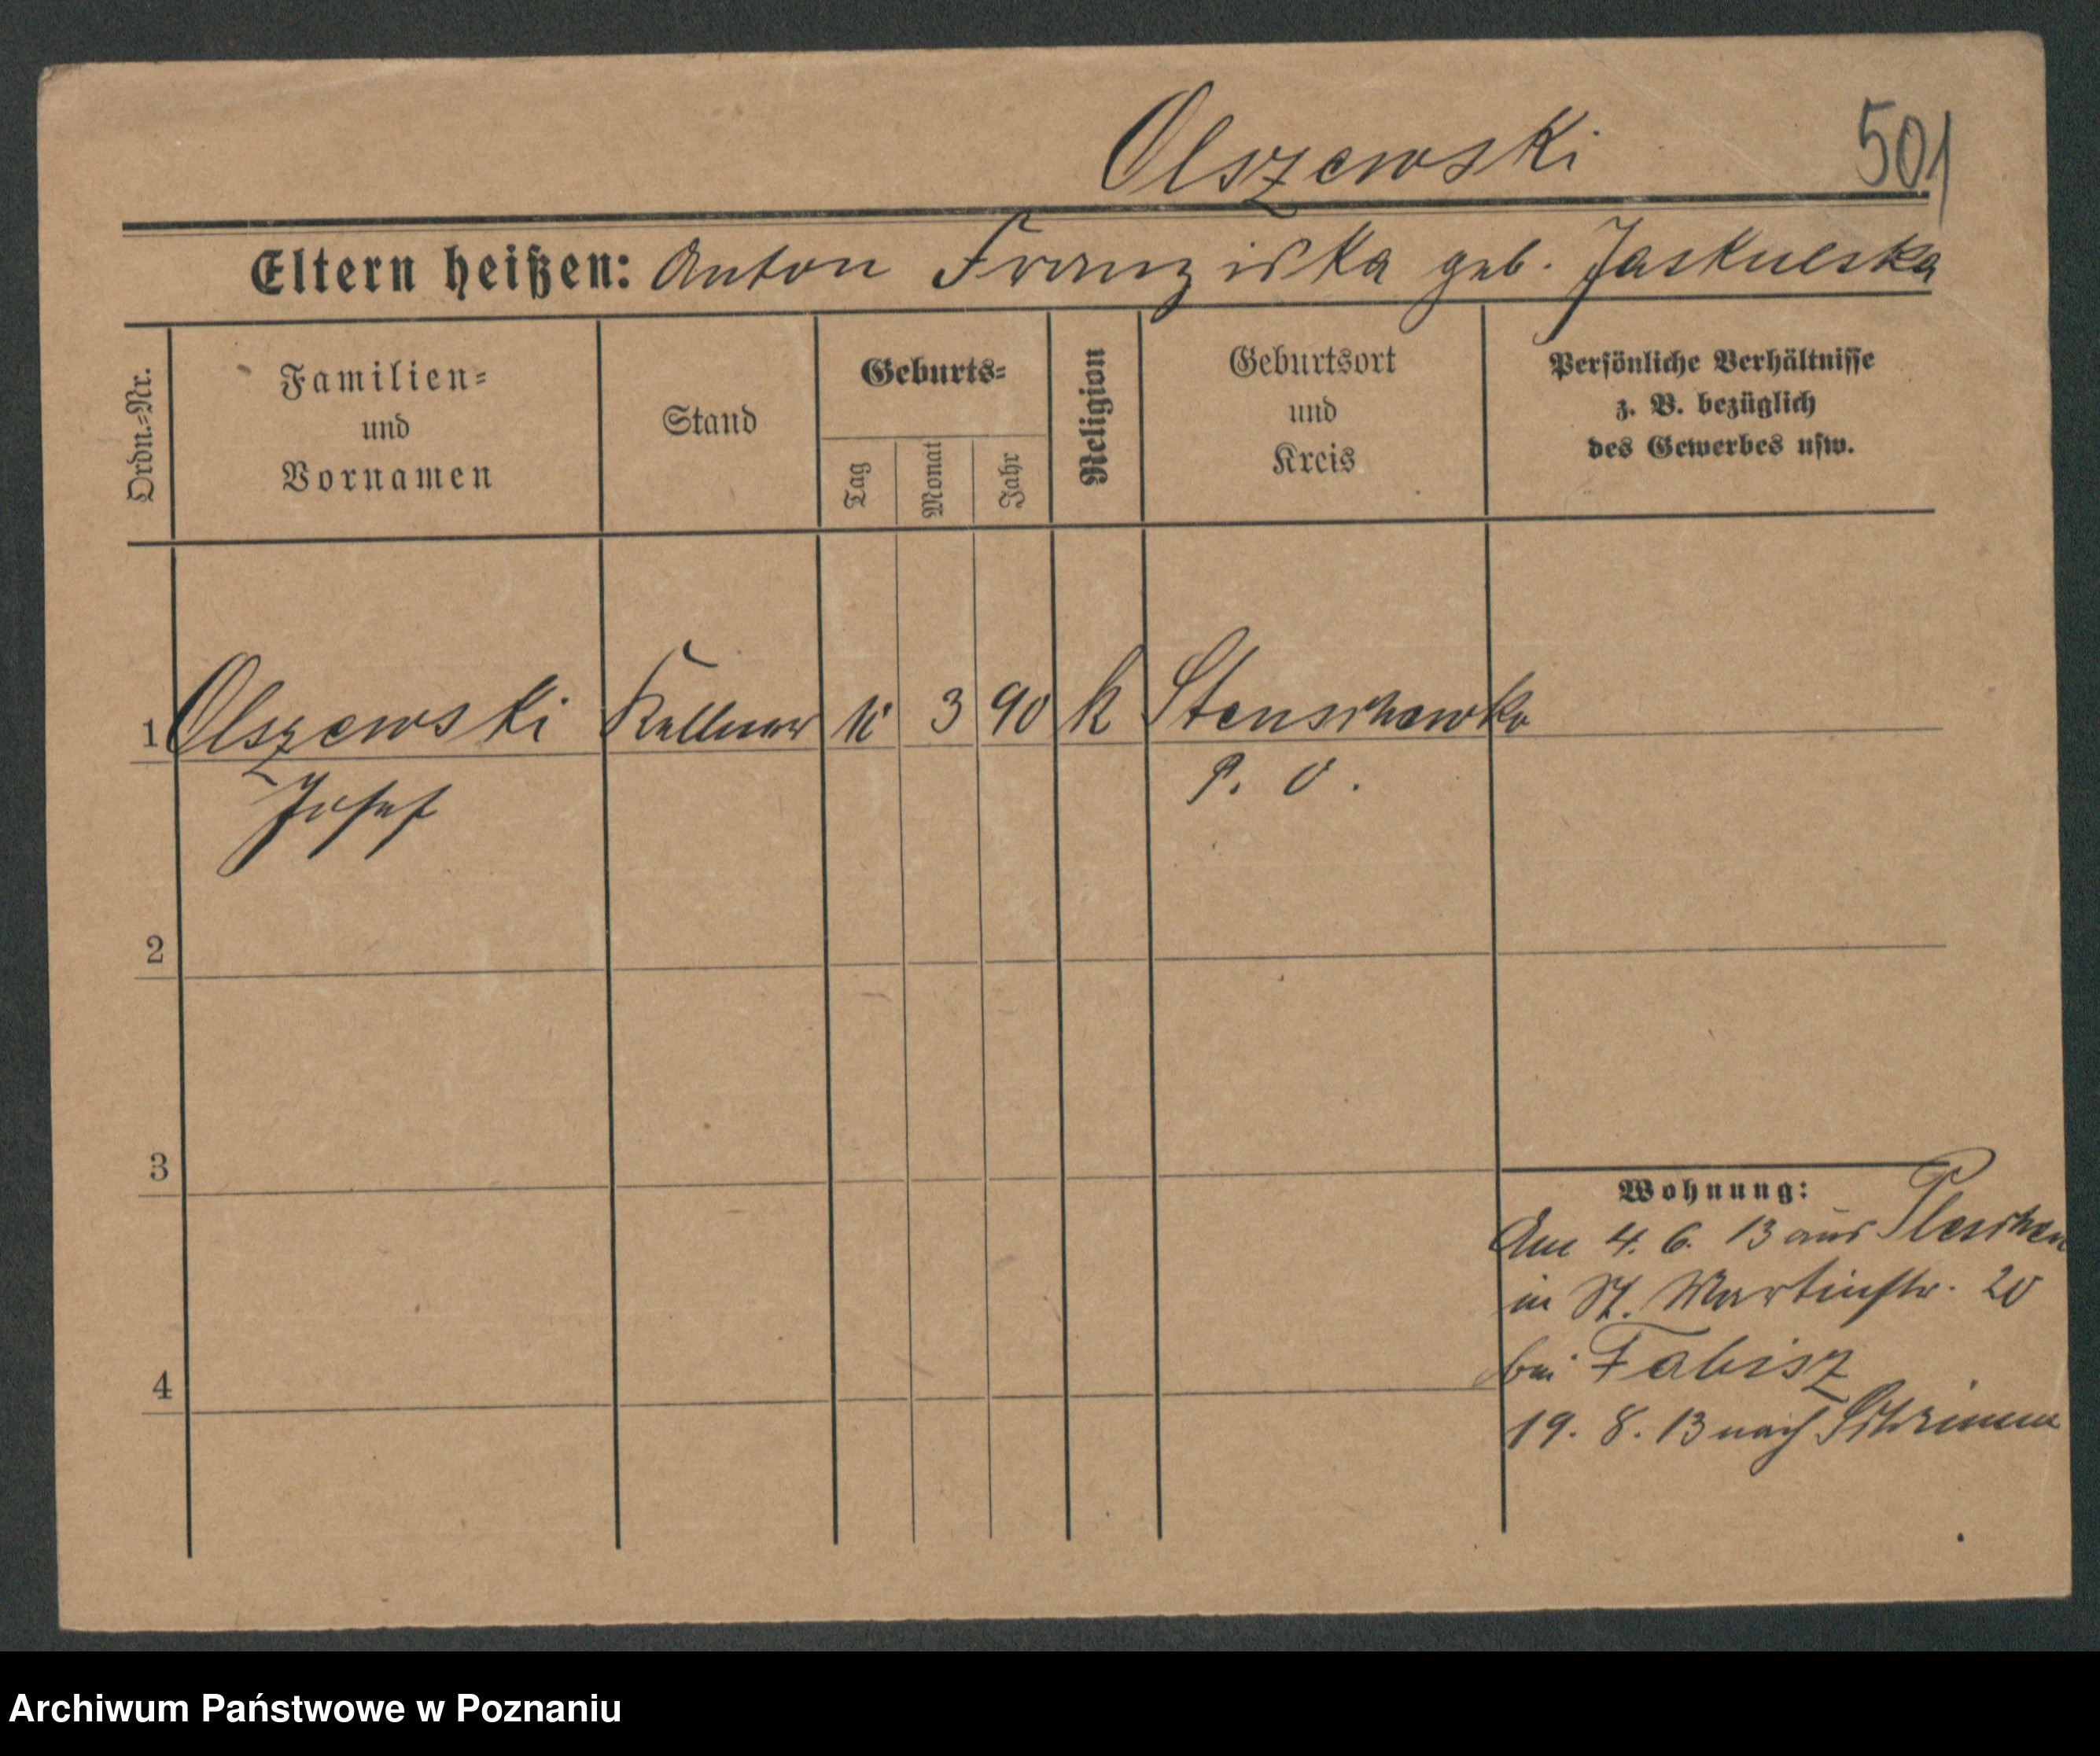 Olszewski
501
Eltern heißen: Anton Franziska geb. Jaskulska
Ordn.=Nr.
Familien=
und
Vornamen
Stand
Geburts=
Tag
Monat
Jahr
Religion
Geburtsort
und
Kreis
Persönliche Verhältnisse
z. B. bezüglich
des Gewerbes usw.
1 Olszewski Kellner 3 90 k Stenschewko
Josef P. O.
2
3
Wohnung:
Am 4. 6. 13 aus Pleschen
in St. Martinstr. 20
bei Fabisz
4
19. 8. 13 nach Schrimm
Archiwum Państwowe w Poznaniu